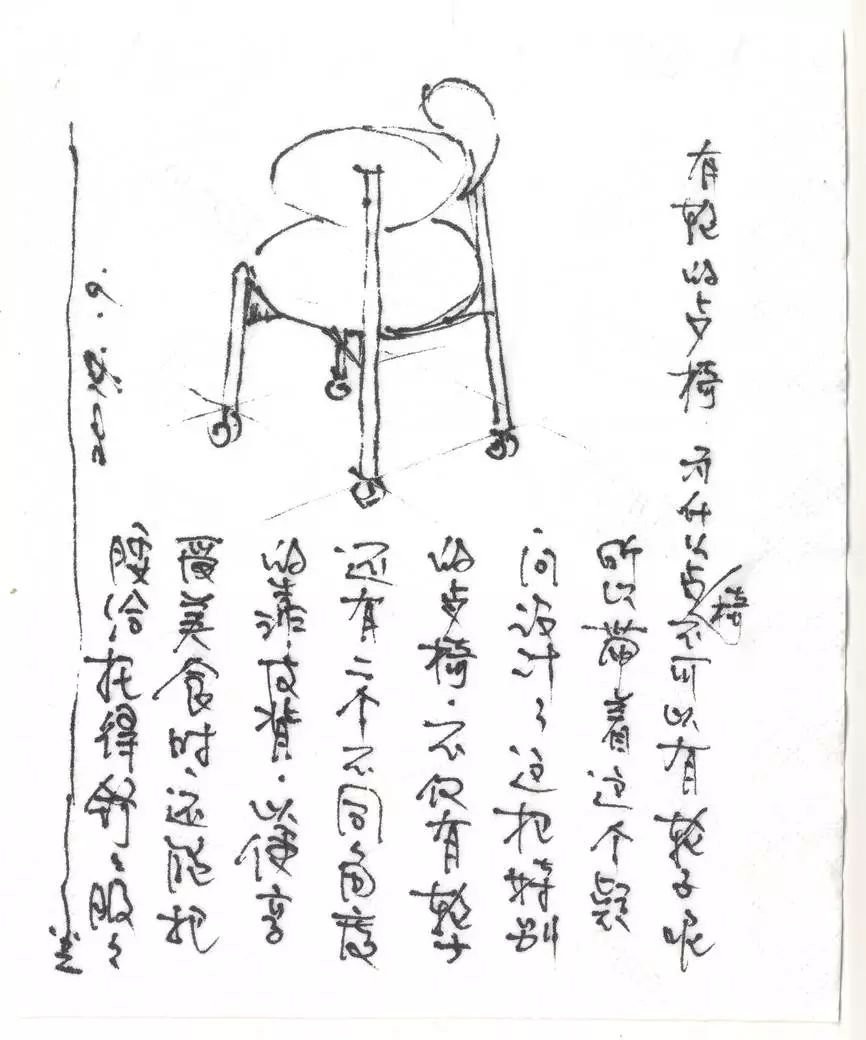 有轮的歺椅 为什么歺椅不可以有轮子呢
所以带着这个疑
问设计了这把特别
的歺椅.不仅有轮子
还有二个不同角度
的靠背.以便享
受美食时还能把
腰给托得舒々服々